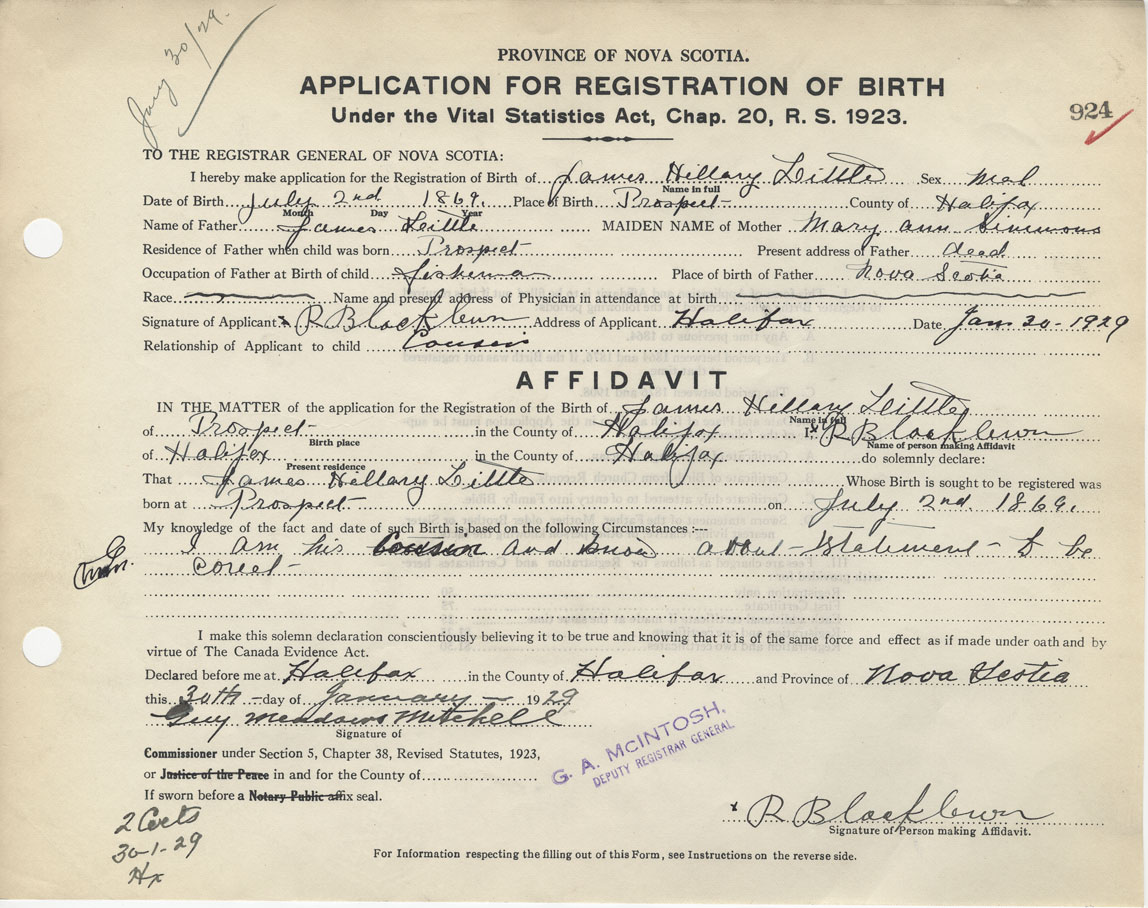 Jany 30/29.
PROVINCE OF NOVA SCOTIA.
APPLICATION FOR REGISTRATION OF BIRTH
Under the Vital Statistics Act, Chap. 20, R. S. 1923.
924
TO THE REGISTRAR GENERAL OF NOVA SCOTIA:
I hereby make application for the Registration of Birth of James Hillary Little Sex mal
Name in full
Date of Birth July 2nd 1869. Place of Birth Prospect County of Halifax
Month Day Year
Name of Father James Little MAIDEN NAME of Mother Mary ann Simmons
Residence of Father when child was born Prospect Present address of Father dead
Occupation of Father at Birth of child fisherma Place of birth of Father Nova Scotia
Race Name and present address of Physician in attendance at birth
Signature of Applicant x R Blackburn Address of Applicant Halifax Date Jan 30 - 1929
Relationship of Applicant to child Cousin
AFFIDAVIT
IN THE MATTER of the application for the Registration of the Birth of James Hillary Little
Name in full
of Prospect in the County of Halifax I, x R Blackburn
Birth place Name of person making Affidavit
of Halifax in the County of Halifax do solemnly declare:
Present residence
That James Hillary Little Whose Birth is sought to be registered was
born at Prospect on July 2nd. 1869.
My knowledge of the fact and date of such Birth is based on the following Circumstances :---
I am his Cousion and know about Statement to be
corect
I make this solemn declaration conscientiously believing it to be true and knowing that it is of the same force and effect as if made under oath and by
virtue of The Canada Evidence Act.
Declared before me at Halifax in the County of Halifax and Province of Nova Scotia
this 30th day of January 1929
Guy Meadows Mitchell
Signature of
Commissioner under Section 5, Chapter 38, Revised Statutes, 1923,
or Justice of the Peace in and for the County of
If sworn before a Notary Public affix seal.
G. A. MCINTOSH,
DEPUTY REGISTRAR GENERAL
x R Blackburn
Signature of Person making Affidavit.
2 Certs
30-1-29
Hx
For Information respecting the filling out of this Form, see Instructions on the reverse side.